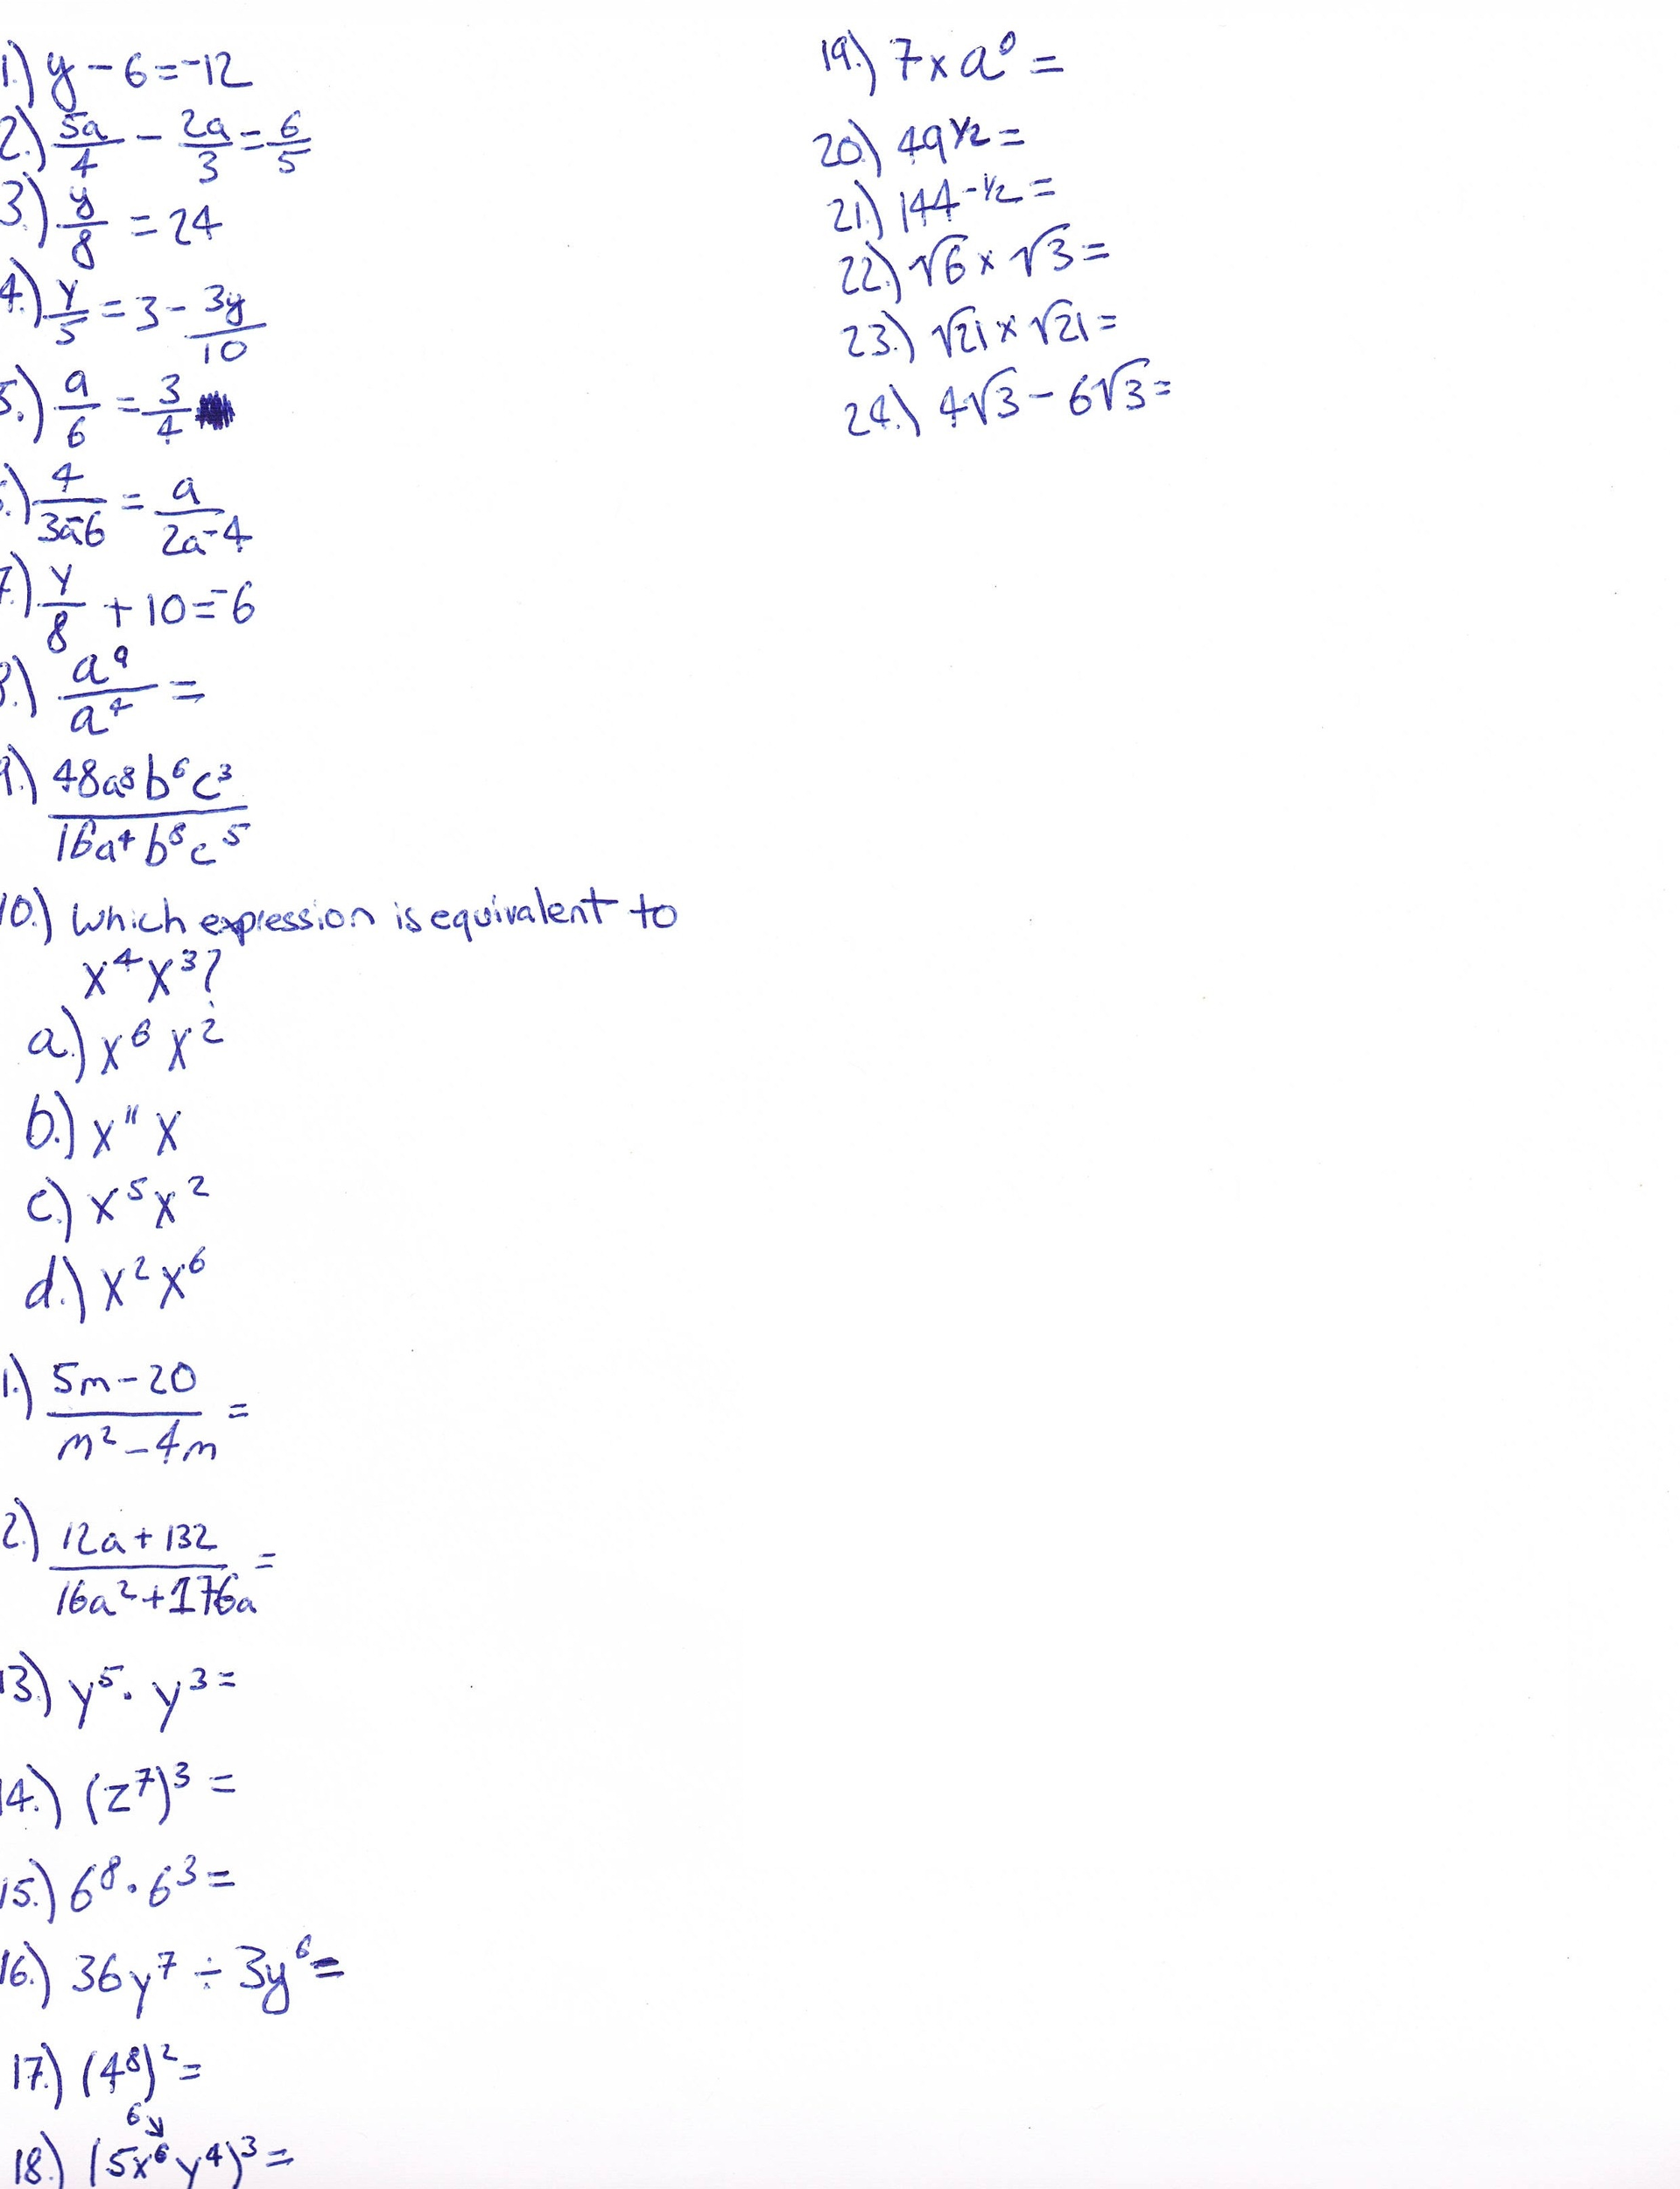 1.) y - 6 = -12
2.) 5a/4 - 2a/3 = 6/5
3.) y/8 = 24
4.) y/5 = 3 - 3y/10
5.) a/6 = 3/4
.) 4/(3a-6) = a/(2a-4)
7.) y/8 + 10 = -6
8.) a⁹/a⁴ =
9.) 48a⁸b⁶c³/16a⁴b⁸c⁵
10.) Which expression is equivalent to
x⁴x³?
a.) x⁶x²
b.) x¹¹x
c.) x⁵x²
d.) x²x⁶
1.) (5m-20)/(m²-4m) =
2.) (12a+132)/(16a²+176a) =
13.) y⁵·y³=
14.) (z⁷)³ =
15.) 6⁸·6³=
16.) 36y⁷ ÷ 3y⁶=
17.) (4⁸)²=
6↘
18.) (5x⁶y⁴)³=
19.) 7 x a⁰ =
20.) 49^1/2 =
21.) 144^-1/2 =
22.) √6 x √3 =
23.) √21 x √21 =
24.) 4√3 - 6√3 =